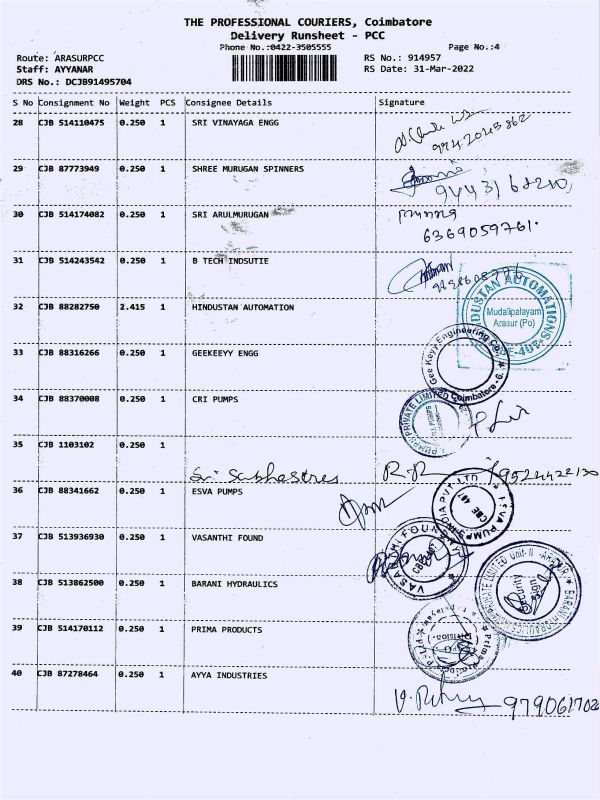 THE PROFESSIONAL COURIERS, Coimbatore
Delivery Runsheet - PCC
Phone No.:0422-3505555
Page No.:4
Route: ARASURPCC
RS No.: 914957
Staff: AYYANAR
RS Date: 31-Mar-2022
DRS No.: DCJB91495704
S No Consignment No Weight PCS Consignee Details Signature
28 CJB 514110475 0.250 1 SRI VINAYAGA ENGG
29 CJB 87773949 0.250 1 SHREE MURUGAN SPINNERS
30 CJB 514174082 0.250 1 SRI ARULMURUGAN
6369059761.
31 CJB 514243542 0.250 1 B TECH INDSUTIE
32 CJB 88282750 2.415 1 HINDUSTAN AUTOMATION
DUSTAN AUTOMATIONS
Mudalipalayam
Arasur (Po)
33 CJB 88316266 0.250 1 GEEKEEYY ENGG
Gee Keyy Engineering Co.
Coimbatore
34 CJB 88370008 0.250 1 CRI PUMPS
PUMPS PRIVATE LIMITED
35 CJB 1103102 0.250 1
Sri Subhastres R.R 9524422130
36 CJB 88341662 0.250 1 ESVA PUMPS
ESVA PUMPS INDIA PVT LTD
CBE 407
37 CJB 513936930 0.250 1 VASANTHI FOUND
VASANTHI FOUNDRY
38 CJB 513862500 0.250 1 BARANI HYDRAULICS
PRIVATE LIMITED Unit-II
Security
39 CJB 514170112 0.250 1 PRIMA PRODUCTS
40 CJB 87278464 0.250 1 AYYA INDUSTRIES
979061702